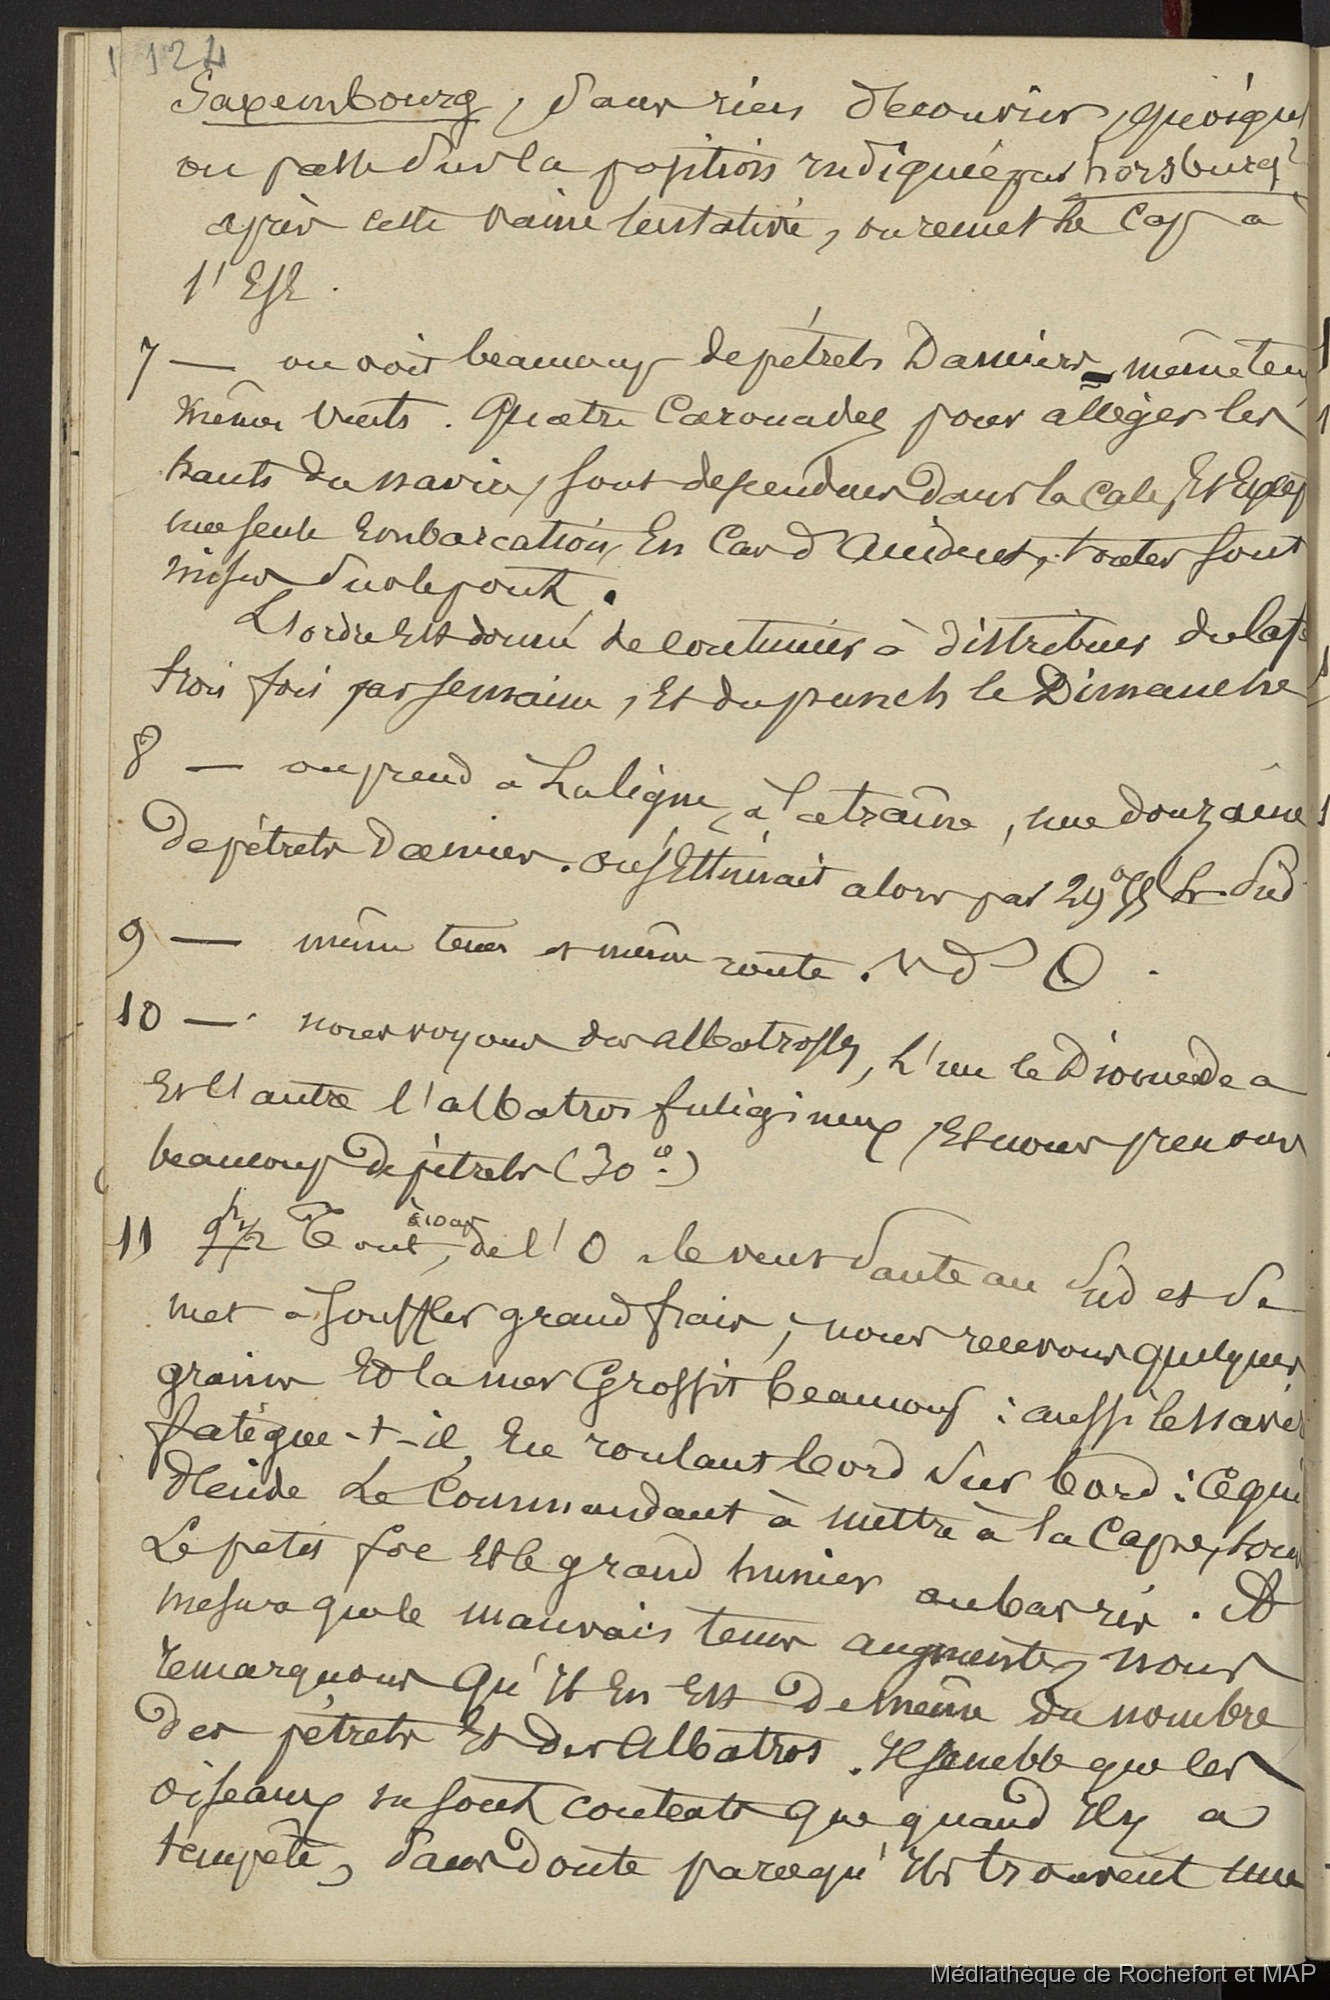 124
Saxembourg, sans rien découvrir, quoiqu
on passe sur la position indiquée par horsburg
après cette vaine tentative, on remet le Cap à
l'Est.
7 — on voit beaucoup de pétrels Damiers = même tem
mêmes vents. Quatre Caronades pour alléger les
hauts du navire, sont descendues dans la Cale, Et Excep
une seule Embarcation, En Cas d'accident, toutes sont
mises sur le pont.
L'ordre Est donné de continuer à distribuer du Caf
trois fois par semaine, Et du punch le Dimanche
8 — on prend à la ligne, à la traîne, une douzaine
de pétrels Damiers. on s'Estimait alors par 29° Sud
9 — même tems et même route. O.
10 — nous voyons des albatrosses, l'un le Diomedea
Et l'autre l'albatros fuligineux, Et nous prenons
beaucoup de pétrels (30e)
11 9h 1/2 Tout à coup, de l'O le vent saute au Sud et se
met à souffler grand frais, nous recevons quelques
grains Et la mer Grossit beaucoup : aussi le navi
fatigue-t-il, En roulant bord sur bord : Ce qui
décide Le Commandant à mettre à la Cape, sous
Le petit foc Et le grand hunier au bas ris. A
mesure que le mauvais tems augmente, nous
remarquons qu'il En Est de même du nombre
des pétrels Et des Albatros. Il semble que les
oiseaux ne sont contents que quand Il y a
tempête, sans doute parcequ'Ils trouvent une
Médiathèque de Rochefort et MAP